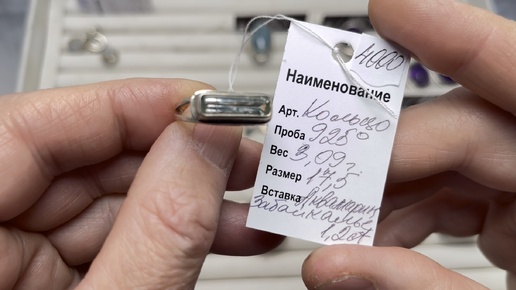 4000
Наименование
Арт. Кольцо
Проба 925°
Вес 3,09 г
Размер 17,5
Вставка Аквамарин
Забайкалье
1,20ct